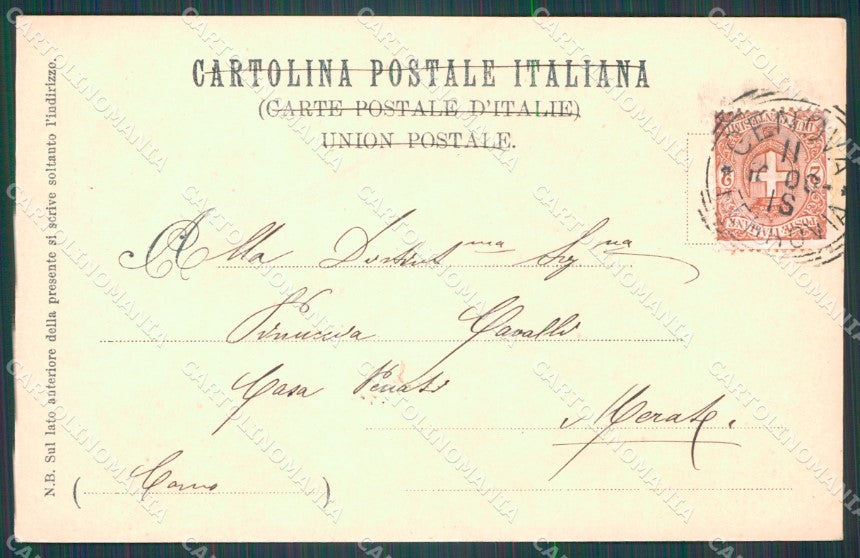 CARTOLINA POSTALE ITALIANA
(CARTE POSTALE D'ITALIE)
UNION POSTALE.
N.B. Sul lato anteriore della presente si scrive soltanto l'indirizzo.
Alla Distint.ma Sig.na
Cavalli
Casa
Merate.
(Como)
POSTE ITALIANE
DUE CENTESIMI
2 2
GENOVA
FERROVIA
11
CARTOLINOMANIA